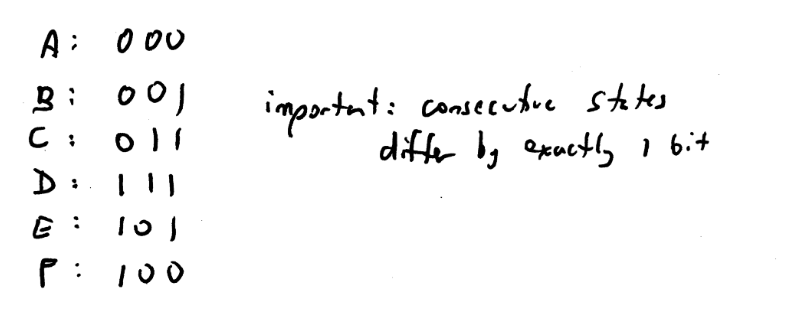 A: 000
B: 001
C: 011
D: 111
E: 101
F: 100
important: consecutive states
differ by exactly 1 bit